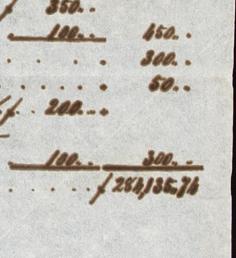 ƒ 350..
100.. 450..
. . . . 300..
. . . . . 50..
ƒ. 200...
100.. 300..
. . . . . ƒ 284,135.74